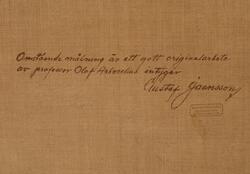 Omstående målning är ett gott originalarbete
av professor Olof Arborelius intygar
Gustaf Jaensson